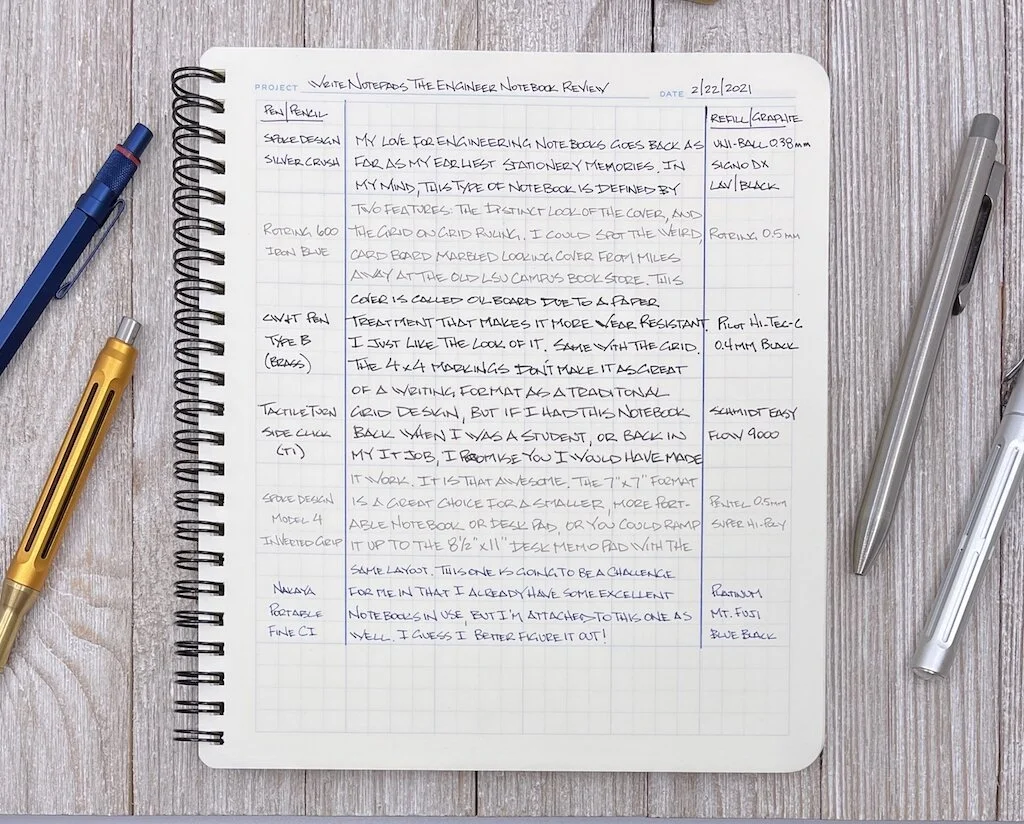 PROJECT WRITE NOTEPADS THE ENGINEER NOTEBOOK REVIEW DATE 2/22/2021
PEN/PENCIL REFILL/GRAPHITE
SPOKE DESIGN MY LOVE FOR ENGINEERING NOTEBOOKS GOES BACK AS UNI-BALL 0.38mm
SILVER CRUSH FAR AS MY EARLIEST STATIONERY MEMORIES. IN SIGNO DX
MY MIND, THIS TYPE OF NOTEBOOK IS DEFINED BY LAV/BLACK
TWO FEATURES: THE DISTINCT LOOK OF THE COVER, AND
ROTRING 600 THE GRID ON GRID RULING. I COULD SPOT THE WEIRD, ROTRING 0.5mm
IRON BLUE CARD BOARD MARBLED LOOKING COVER FROM MILES
AWAY AT THE OLD LSU CAMPUS BOOKSTORE. THIS
COVER IS CALLED OILBOARD DUE TO A PAPER
CW&T PEN TREATMENT THAT MAKES IT MORE WEAR RESISTANT. PILOT HI-TEC-C
TYPE B I JUST LIKE THE LOOK OF IT. SAME WITH THE GRID. 0.4MM BLACK
(BRASS) THE 4x4 MARKINGS DON'T MAKE IT AS GREAT
OF A WRITING FORMAT AS A TRADITONAL
TACTILE TURN GRID DESIGN, BUT IF I HAD THIS NOTEBOOK SCHMIDT EASY
SIDE CLICK BACK WHEN I WAS A STUDENT, OR BACK IN FLOW 9000
(TI) MY IT JOB, I PROMISE YOU I WOULD HAVE MADE
IT WORK. IT IS THAT AWESOME. THE 7"x7" FORMAT
SPOKE DESIGN IS A GREAT CHOICE FOR A SMALLER, MORE PORT- PENTEL 0.5mm
MODEL 4 ABLE NOTEBOOK OR DESK PAD, OR YOU COULD RAMP SUPER HI-POLY
INVERTED GRIP IT UP TO THE 8½"x11" DESK MEMO PAD WITH THE
SAME LAYOUT. THIS ONE IS GOING TO BE A CHALLENGE
NAKAYA FOR ME IN THAT I ALREADY HAVE SOME EXCELLENT PLATINUM
PORTABLE NOTEBOOKS IN USE, BUT I'M ATTACHED TO THIS ONE AS MT. FUJI
FINE CI WELL. I GUESS I BETTER FIGURE IT OUT! BLUE BLACK